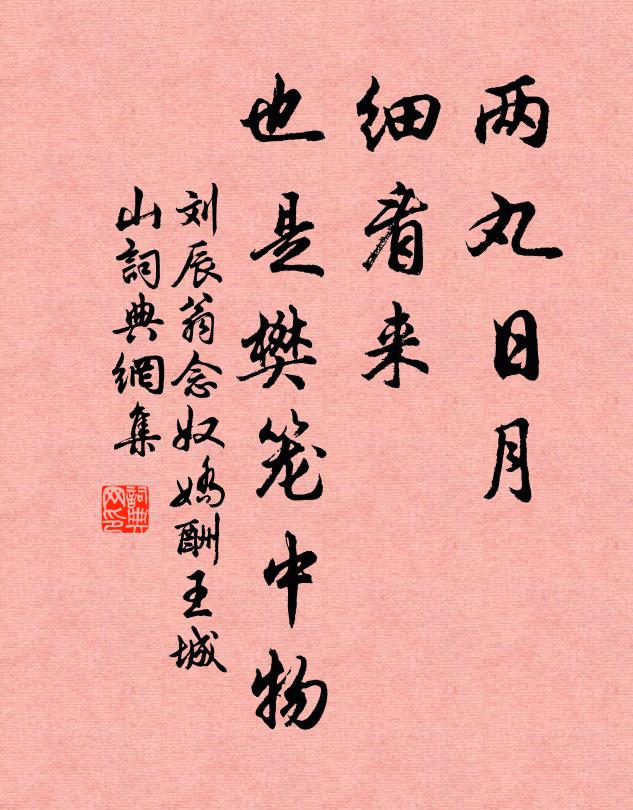 两丸日月
细看来
也是樊笼中物
刘辰翁念奴娇酬王城
山詞典網集
詞典
网印